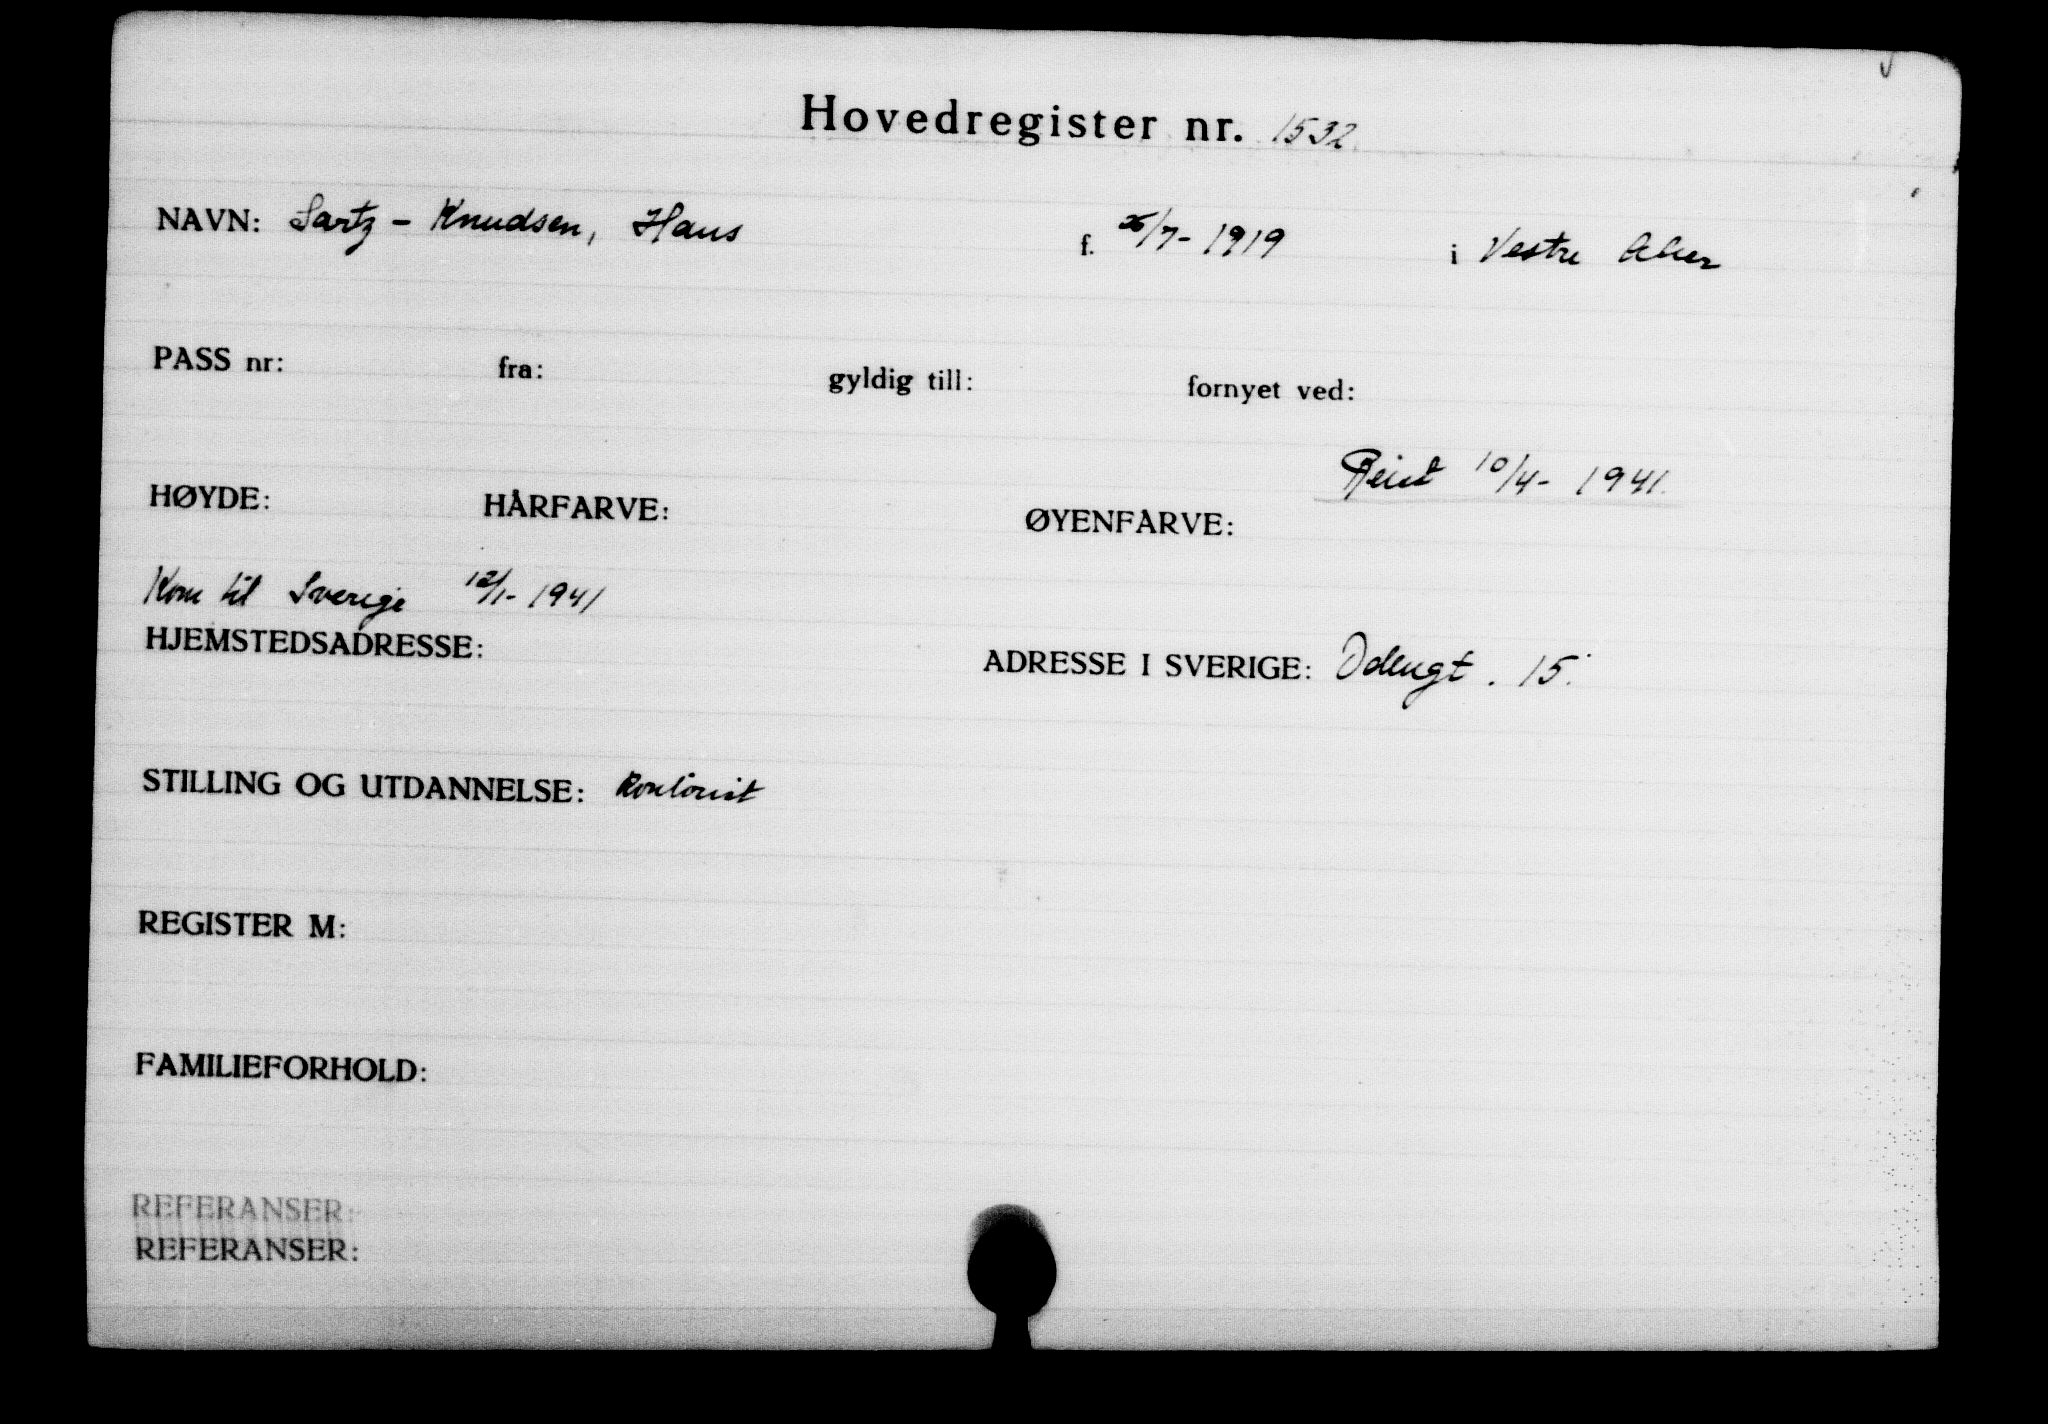 Hovedregister nr. 1532
NAVN: Sartz - Knudsen, Hans f. /7- 1919 i Vestre Aker
PASS nr: fra: gyldig till: fornyet ved:
Reist 10/4- 1941.
HØYDE: HÅRFARVE: ØYENFARVE:
Kom til Sverige 12/1- 1941
HJEMSTEDSADRESSE: ADRESSE I SVERIGE: Odengt. 15.
STILLING OG UTDANNELSE: Kontorist
REGISTER M:
FAMILIEFORHOLD:
REFERANSER:
REFERANSER: